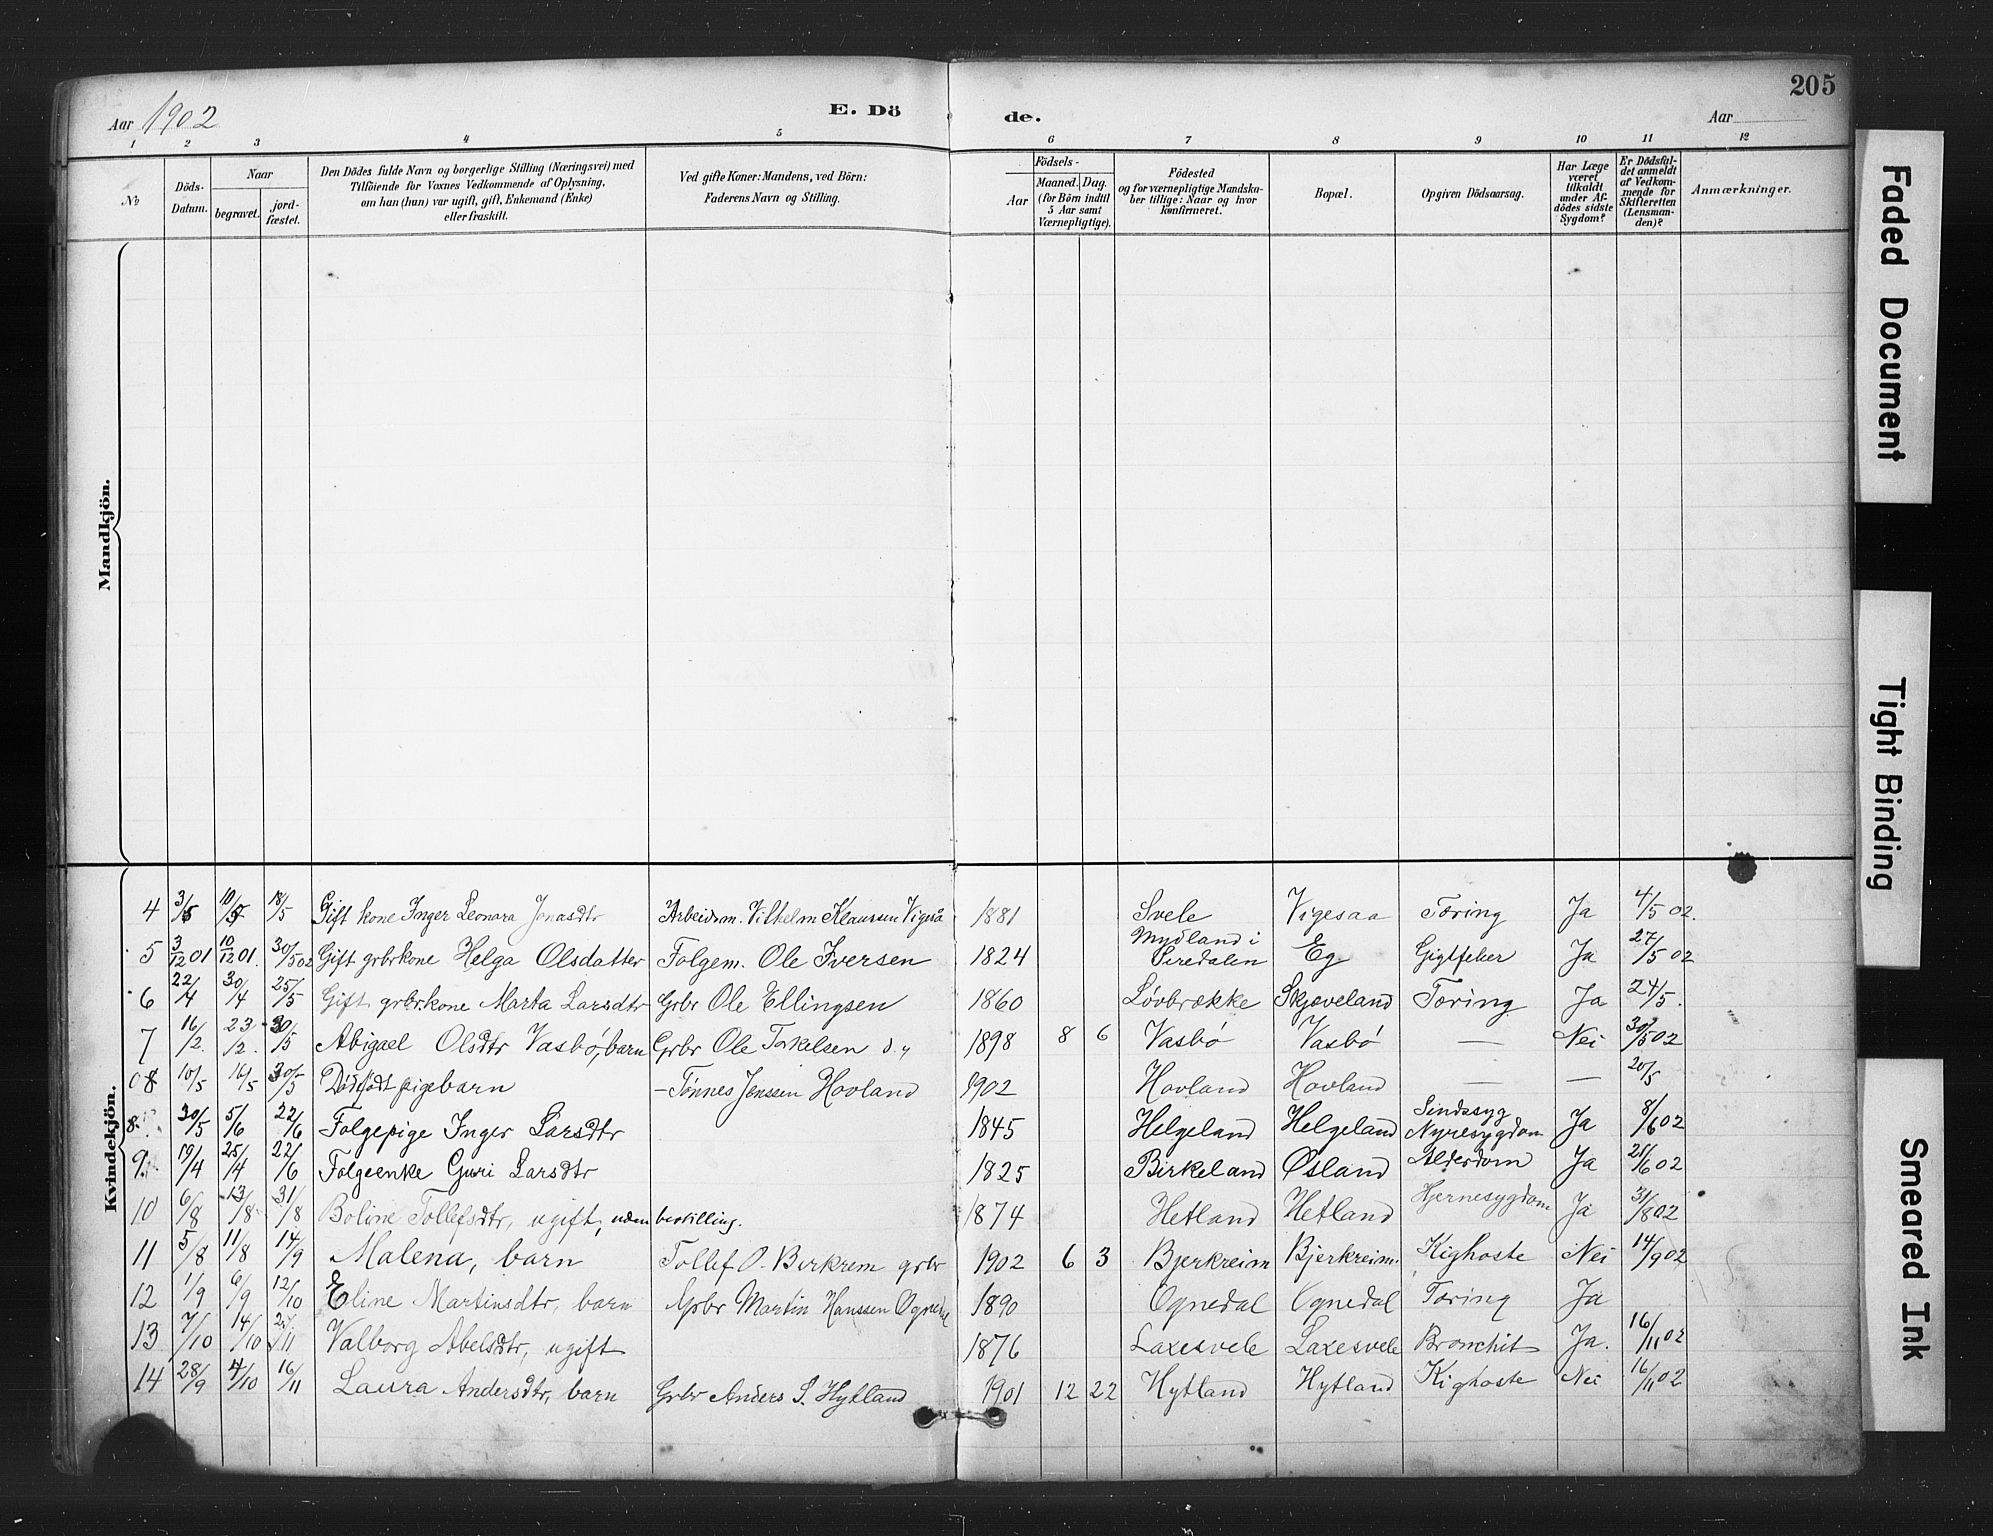 205
Aar 1902 E. Dö de. Aar
1 2 3 4 5 6 7 8 9 10 11 12
No
Döds-Datum.
Naar
begravet.
jord-fæstet.
Den Dödes fulde Navn og borgerlige Stilling (Næringsvei) med
Tilföiende for Voxnes Vedkommende af Oplysning,
om han (hun) var ugift, gift, Enkemand (Enke)
eller fraskilt.
Ved gifte Koner: Mandens, ved Börn:
Faderens Navn og Stilling.
Födsels-
Aar
Maaned. Dag.
(for Börn indtil
5 Aar samt
Værnepligtige).
Födested
og for værnepligtige Mandska-
ber tillige: Naar og hvor
konfirmeret.
Bopæl.
Opgiven Dödsaarsag.
Har Læge
været
tilkaldt
under Af-
dödes sidste
Sygdom?
Er Dödsfal-
det anmeldt
af Vedkom-
mende for
Skifteretten
(Lensman-
den)?
Anmærkninger.
Mandkjön.
Kvindekjön.
4 3/5 10/5 18/5 Gift kone Inger Leonora Jonasdtr Arbeidsm. Vilhelm Klaussen Vigeså 1881 Svele Vigesaa Tæring Ja 4/5 02.
5 3/12 01 10/12 01. 30/5 02 Gift grbrkone Helga Olsdatter Folgem. Ole Iversen 1824 Mydland i Siredalen Eg Gigtfeber Ja 27/5 02
6 22/4 30/4 25/5 Gift grbrkone Marta Larsdtr Grbr Ole Ellingsen 1860 Løvbrække Skjæveland Tæring Ja 24/5.
7 16/2. 23/2. 30/5 Abigael Olsdtr Vasbø, barn Grbr Ole Torkelsen 1898 8 6 Vasbø Vasbø — Nei 30/5 02
08 10/5 16/5 30/5 Dødfødt pigebarn — Tønnes Jenssen Hovland 1902 Hovland Hovland — — 20/5
8. 30/5 5/6 22/6 Folgepige Inger Larsdtr 1845 Helgeland Helgeland Sindssyg Nyresygdom Ja 8/6 02
9. 19/4 25/4 22/6 Folgeenke Guri Larsdtr 1825 Birkeland Øsland Alderdom Ja 21/6 02
10 6/8 13/8 31/8 Boline Tollefsdtr, ugift, uden bestilling. 1874 Hetland Hetland Hjernesygdom Ja 31/8 02
11 5/8 11/8 14/9 Malena, barn Tollef O. Birkrem grbr 1902 6 3 Bjerkreim Bjerkreim. Kighoste Nei 14/9 02
12 1/9 6/9 12/10 Eline Martinsdtr, barn Grbr Martin Hanssen Ognedal 1890 Ognedal Ognedal Tæring Ja
13 7/10 14/10 Valborg Abelsdtr, ugift 1876 Laxesvele Laxesvele Bronchit Ja. 16/11 02
14 28/9 4/10 16/11 Laura Andersdtr, barn Grbr Anders S. Hytland 1901 12 22 Hytland Hytland Kighoste Nei 16/11 02
Faded Document
Tight Binding
Smeared Ink